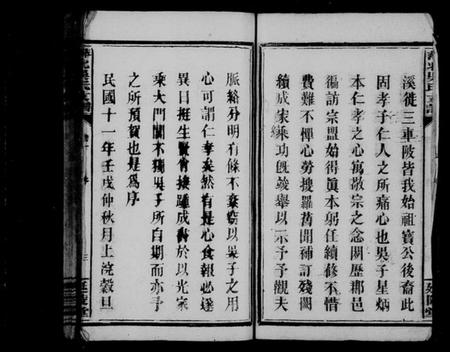 溪徙三車陂皆我始祖寶公後裔此
固孝子仁人之所痛心也吳子星炳
本仁孝之心寓敬宗之念閱歷郡邑
徧訪宗盟始得眞本躬任續修不惜
費難不憚心勞搜羅舊聞補訂殘闕
績成家乘功旣竣舉以示予予觀夫
脈絡分明有條不紊竊以吳子之用
心可謂仁孝矣然有是心食報必逢
異日挺生賢肯接踵成於以光宗
乘大門閭不獨吳子所自期而亦予
之所預賀也是為序
民國十一年壬戌仲秋月上浣穀旦